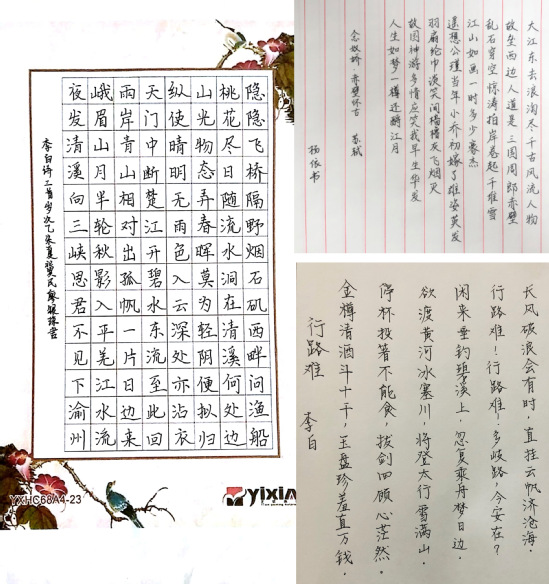 隐隐飞桥隔野烟石矶西畔问渔船
桃花尽日随流水洞在清溪何处边
山光物态弄春晖莫为轻阴便拟归
纵使晴明无雨色入云深处亦沾衣
天门中断楚江开碧水东流至此回
两岸青山相对出孤帆一片日边来
峨眉山月半轮秋影入平羌江水流
夜发清溪向三峡思君不见下渝州
李白诗二首岁次乙未夏
YXHC68A4-23
yixin
大江东去浪淘尽千古风流人物
故垒西边人道是三国周郎赤壁
乱石穿空惊涛拍岸卷起千堆雪
江山如画一时多少豪杰
遥想公瑾当年小乔初嫁了雄姿英发
羽扇纶巾谈笑间樯橹灰飞烟灭
故国神游多情应笑我早生华发
人生如梦一樽还酹江月
念奴娇 赤壁怀古 苏轼
杨依书
长风破浪会有时,直挂云帆济沧海.
行路难!行路难!多歧路,今安在?
闲来垂钓碧溪上,忽复乘舟梦日边.
欲渡黄河冰塞川,将登太行雪满山.
停杯投箸不能食,拔剑四顾心茫然.
金樽清酒斗十千,玉盘珍羞直万钱.
行路难 李白